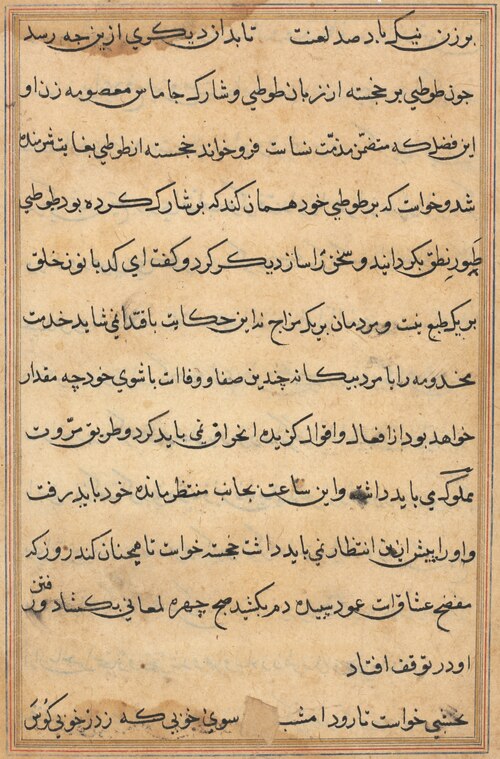 بر زن نیک باد صد لعنت تا بدان دیکری ازین جه رسد
جون طوطی بر خجسته از زبان طوطی و شارک جاماس معصومه زن او
این فصل که متضمّن مذمّت نساست فرو خواند خجسته از طوطی بغایت شرمنده
شد و خواست که بر طوطی خود همان کند که بر شارک کرده بود طوطی
طور نطق بکردانید و سخن را ساز دیکر کرد و کفت ای کدبانو خلق
بریک طبع نیست و مردمان بریک مزاج نه این حکایت باقتدا نمی شاید خدمت
مخدومه را با مرد بیکانه چندین صفا و وفاست با شوی خود چه مقدار
خواهد بود از افعال و اقوال کزیده انحراف نمی باید کرد و طریق مرّوت
مملوک می باید داشت و این ساعت بجانب منتظر مانده خود باید رفت
و او را پیش ازین انتظار نمی باید داشت خجسته خواست تا همچنان کند روز که
مفضح عشاق است عود سپیده دم بکشید صبح چهره لمعانی بکشاد رفتن
او در توقف افتاد
نخشبی خواست تا رود امشب سوی خوبی که زد ز خوبی کوس